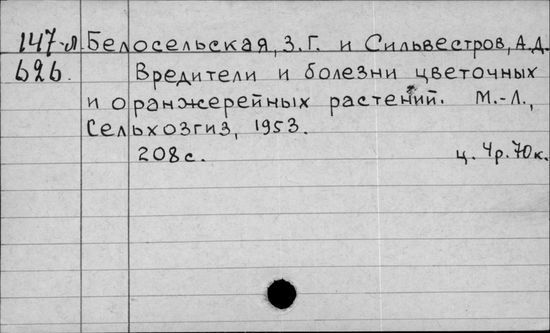 147-л Белосельская, З.Г. и Сильвестров, А.Д.
626. Вредители и болезни цветочных
и оранжерейных растений. М.-Л.,
Сельхозгиз, 1953.
208с. ц. 4р.70к.